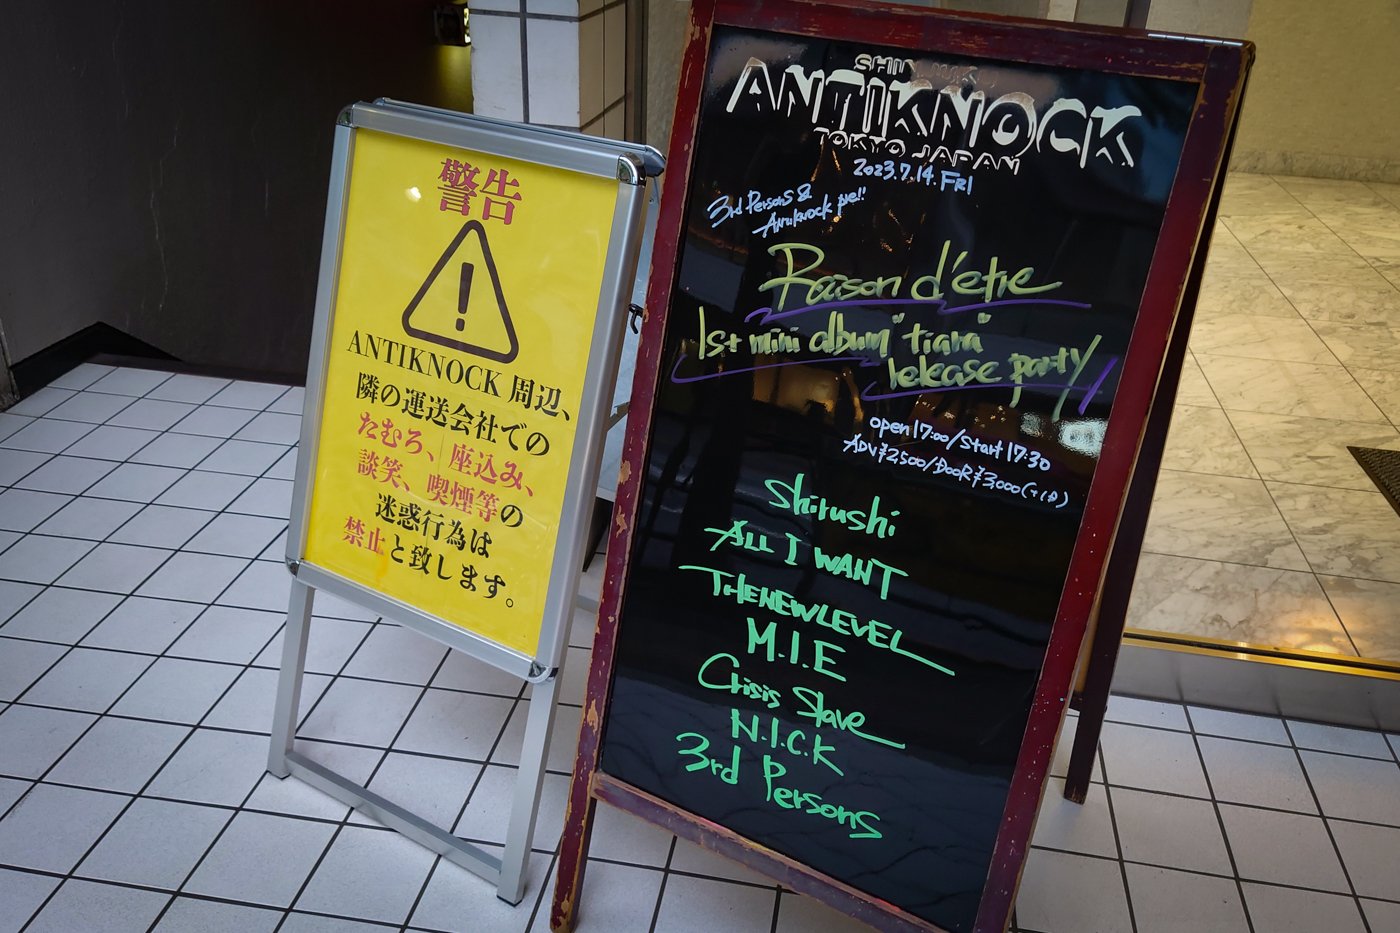 警告
ANTIKNOCK 周辺、
隣の運送会社での
たむろ、座込み、
談笑、喫煙等の
迷惑行為は
禁止と致します。
ANTIKNOCK
TOKYO JAPAN
2023.7.14.FRI
3rd Persons &
Antiknock pre!!
Raison d'etre
1st mini album "tiara"
release party
open 17:00/Start 17:30
ADV ¥2500/DOOR ¥3,000(+1D)
Shirushi
ALL I WANT
THENEWLEVEL
M.I.E
Crisis Slave
N.I.C.K
3rd Persons